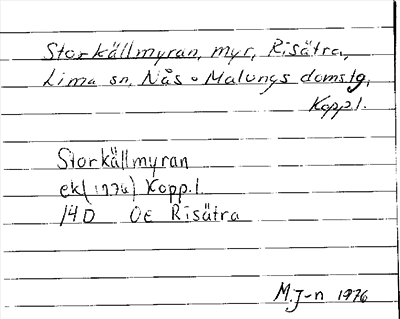 Storkällmyran, myr, Risätra,
Lima sn, Nås o Malungs domslg,
Kopp.l.
Storkällmyran
ek (1974) Kopp.l.
14D Öe Risätra
M.J-n 1976